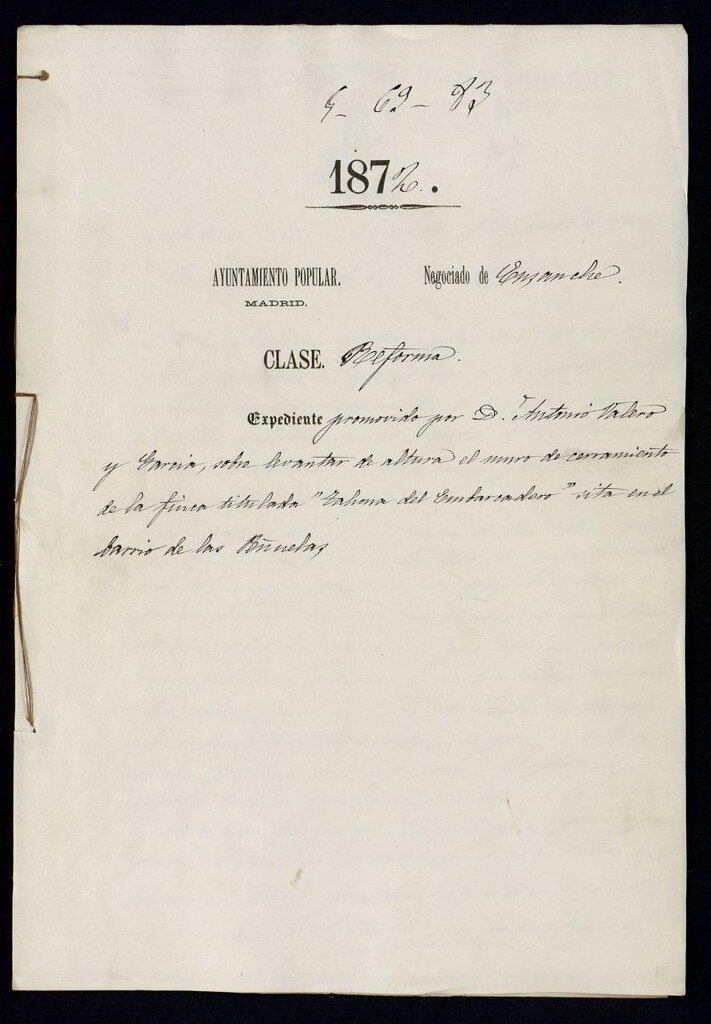 5- 69- 83
1872.
AYUNTAMIENTO POPULAR. Negociado de Ensanche.
MADRID.
CLASE. Reforma.
Expediente promovido por D. Antonio Valero
y Garcia, sobre levantar de altura el muro de cerramiento
de la finca titulada "Tahona del Embarcadero" sita en el
barrio de las Peñuelas